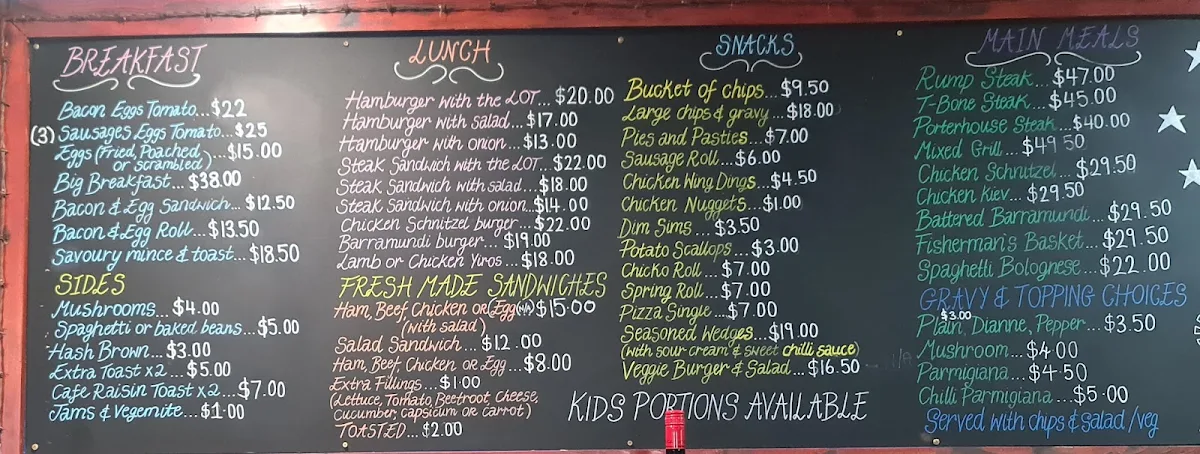 BREAKFAST
Bacon Eggs Tomato...$22
(3) Sausages Eggs Tomato...$25
Eggs (Fried, Poached or scrambled)...$15.00
Big Breakfast...$38.00
Bacon & Egg Sandwich...$12.50
Bacon & Egg Roll...$13.50
Savoury mince & toast...$18.50
SIDES
Mushrooms...$4.00
Spaghetti or baked beans...$5.00
Hash Brown...$3.00
Extra Toast x2...$5.00
Cafe Raisin Toast x2...$7.00
Jams & Vegemite...$1.00
LUNCH
Hamburger with the LOT...$20.00
Hamburger with salad...$17.00
Hamburger with onion...$13.00
Steak Sandwich with the LOT...$22.00
Steak Sandwich with salad...$18.00
Steak Sandwich with onion...$14.00
Chicken Schnitzel burger...$22.00
Barramundi burger...$19.00
Lamb or Chicken Yiros...$18.00
FRESH MADE SANDWICHES
Ham, Beef, Chicken or (Egg) $15.00
(with salad)
Salad Sandwich...$12.00
Ham, Beef, Chicken or Egg...$8.00
Extra Fillings...$1.00
(Lettuce, Tomato, Beetroot, Cheese,
Cucumber, capsicum or carrot)
TOASTED...$2.00
SNACKS
Bucket of chips...$9.50
Large chips & gravy...$18.00
Pies and Pasties...$7.00
Sausage Roll...$6.00
Chicken Wing Dings...$4.50
Chicken Nuggets...$1.00
Dim Sims...$3.50
Potato Scallops...$3.00
Chicko Roll...$7.00
Spring Roll...$7.00
Pizza Single...$7.00
Seasoned Wedges...$19.00
(with sour cream & sweet chilli sauce)
Veggie Burger & Salad...$16.50
KIDS PORTIONS AVAILABLE
MAIN MEALS
Rump Steak...$47.00
T-Bone Steak...$45.00
Porterhouse Steak...$40.00
Mixed Grill...$49.50
Chicken Schnitzel...$29.50
Chicken Kiev...$29.50
Battered Barramundi...$29.50
Fisherman's Basket...$29.50
Spaghetti Bolognese...$22.00
GRAVY & TOPPING CHOICES
$3.00
Plain, Dianne, Pepper...$3.50
Mushroom...$4.00
Parmigiana...$4.50
Chilli Parmigiana...$5.00
Served with chips & salad/veg